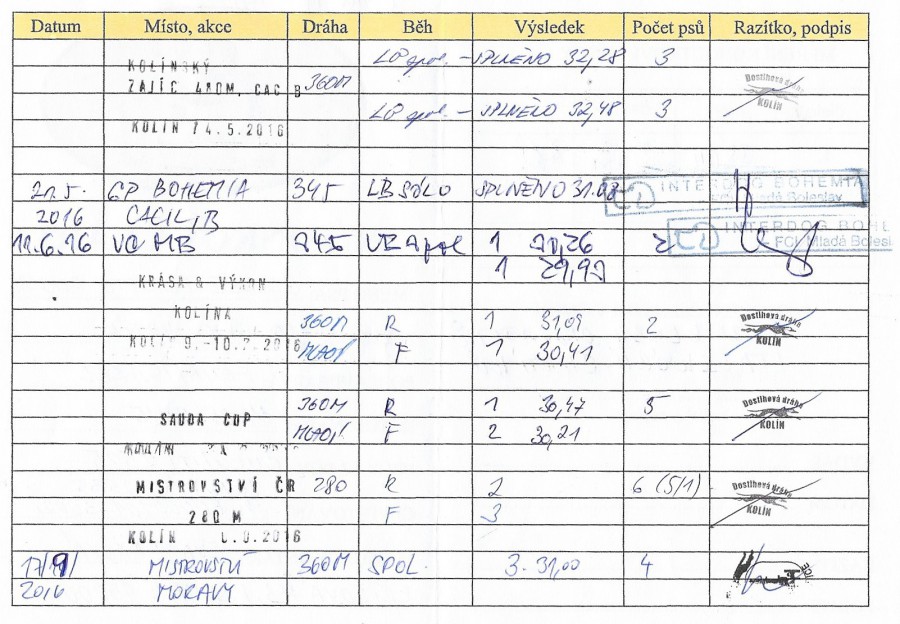 Datum Místo, akce Dráha Běh Výsledek Počet psů Razítko, podpis
KOLÍNSKÝ LB spol. - SPLNĚNO 32,28 3
ZAJÍC 480M, CAC B 360M Dostihová dráha KOLÍN
LB spol. - SPLNĚNO 32,48 3
KOLÍN 14.5.2016
21.5. GP BOHEMIA 345 LB SÓLO SPLNĚNO INTERDOG BOHEMIA
FCI Mladá Boleslav
2016 CACIL, B
VC MB 1 INTERDOG BOHE
FCI Mladá Boles
1 29,92
KRÁSA & VÝKON
KOLÍNA 360M R 1 31,09 2 Dostihová dráha
KOLÍN 9.-10.7.2016 MLADÍ F 1 30,41 KOLÍN
360M R 1 30,47 5 Dostihová dráha
SAUDA CUP MLADÍ F 2 30,21 KOLÍN
MISTROVSTVÍ ČR 280 R 2 6 (5/1) Dostihová dráha
280 M F 3 KOLÍN
KOLÍN 2016
17/9/ MISTROVSTVÍ 360M SPOL. 3. 31,00 4
2016 MORAVY